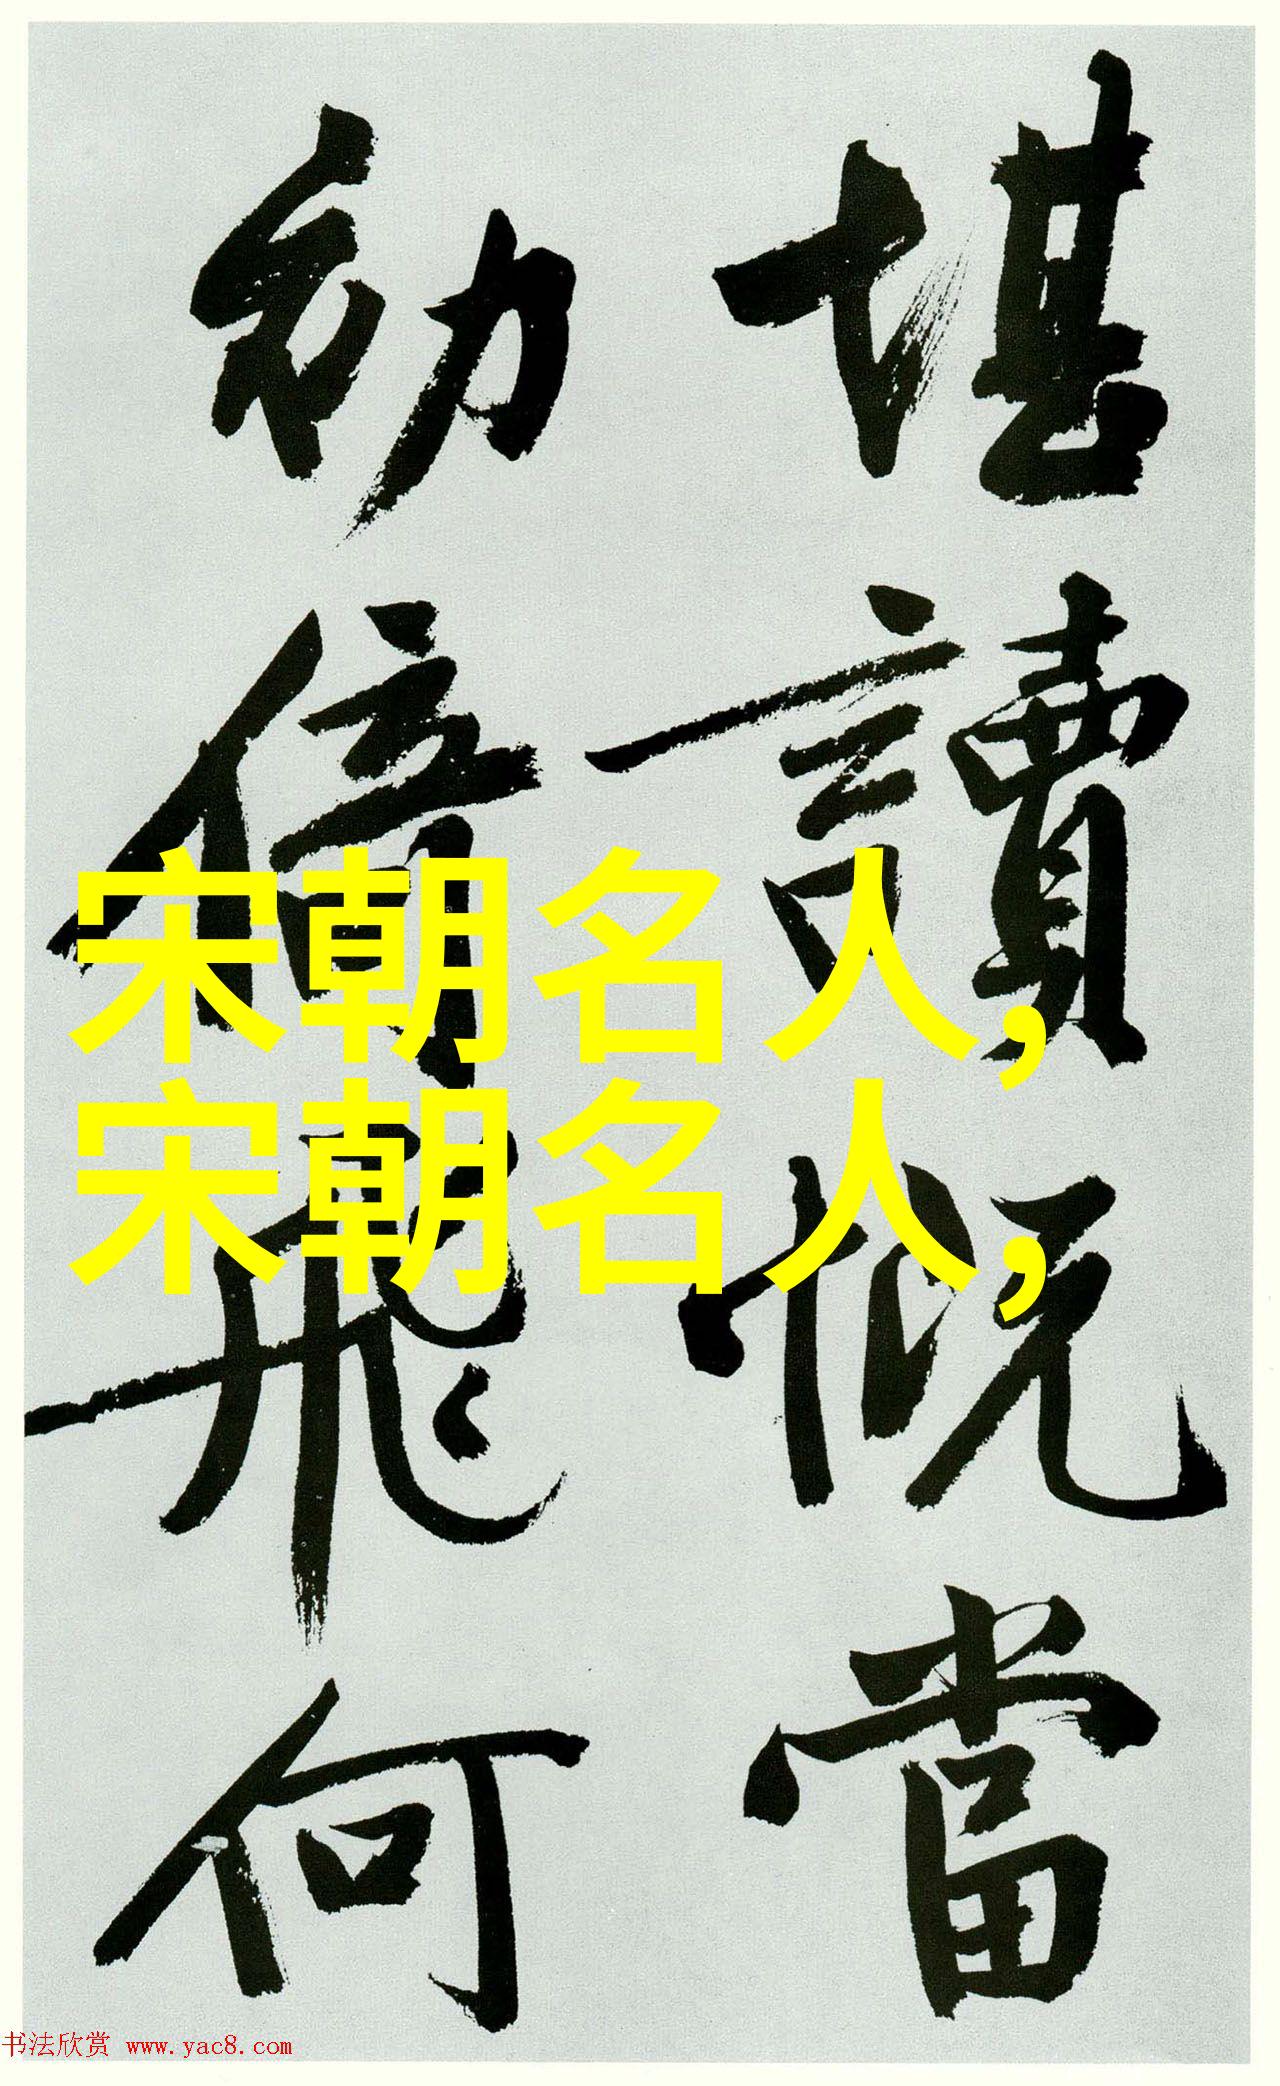 堪讀慨當
幼倍飛何
宋朝名人,
宋朝名人,
书法欣赏 www.yac8.com